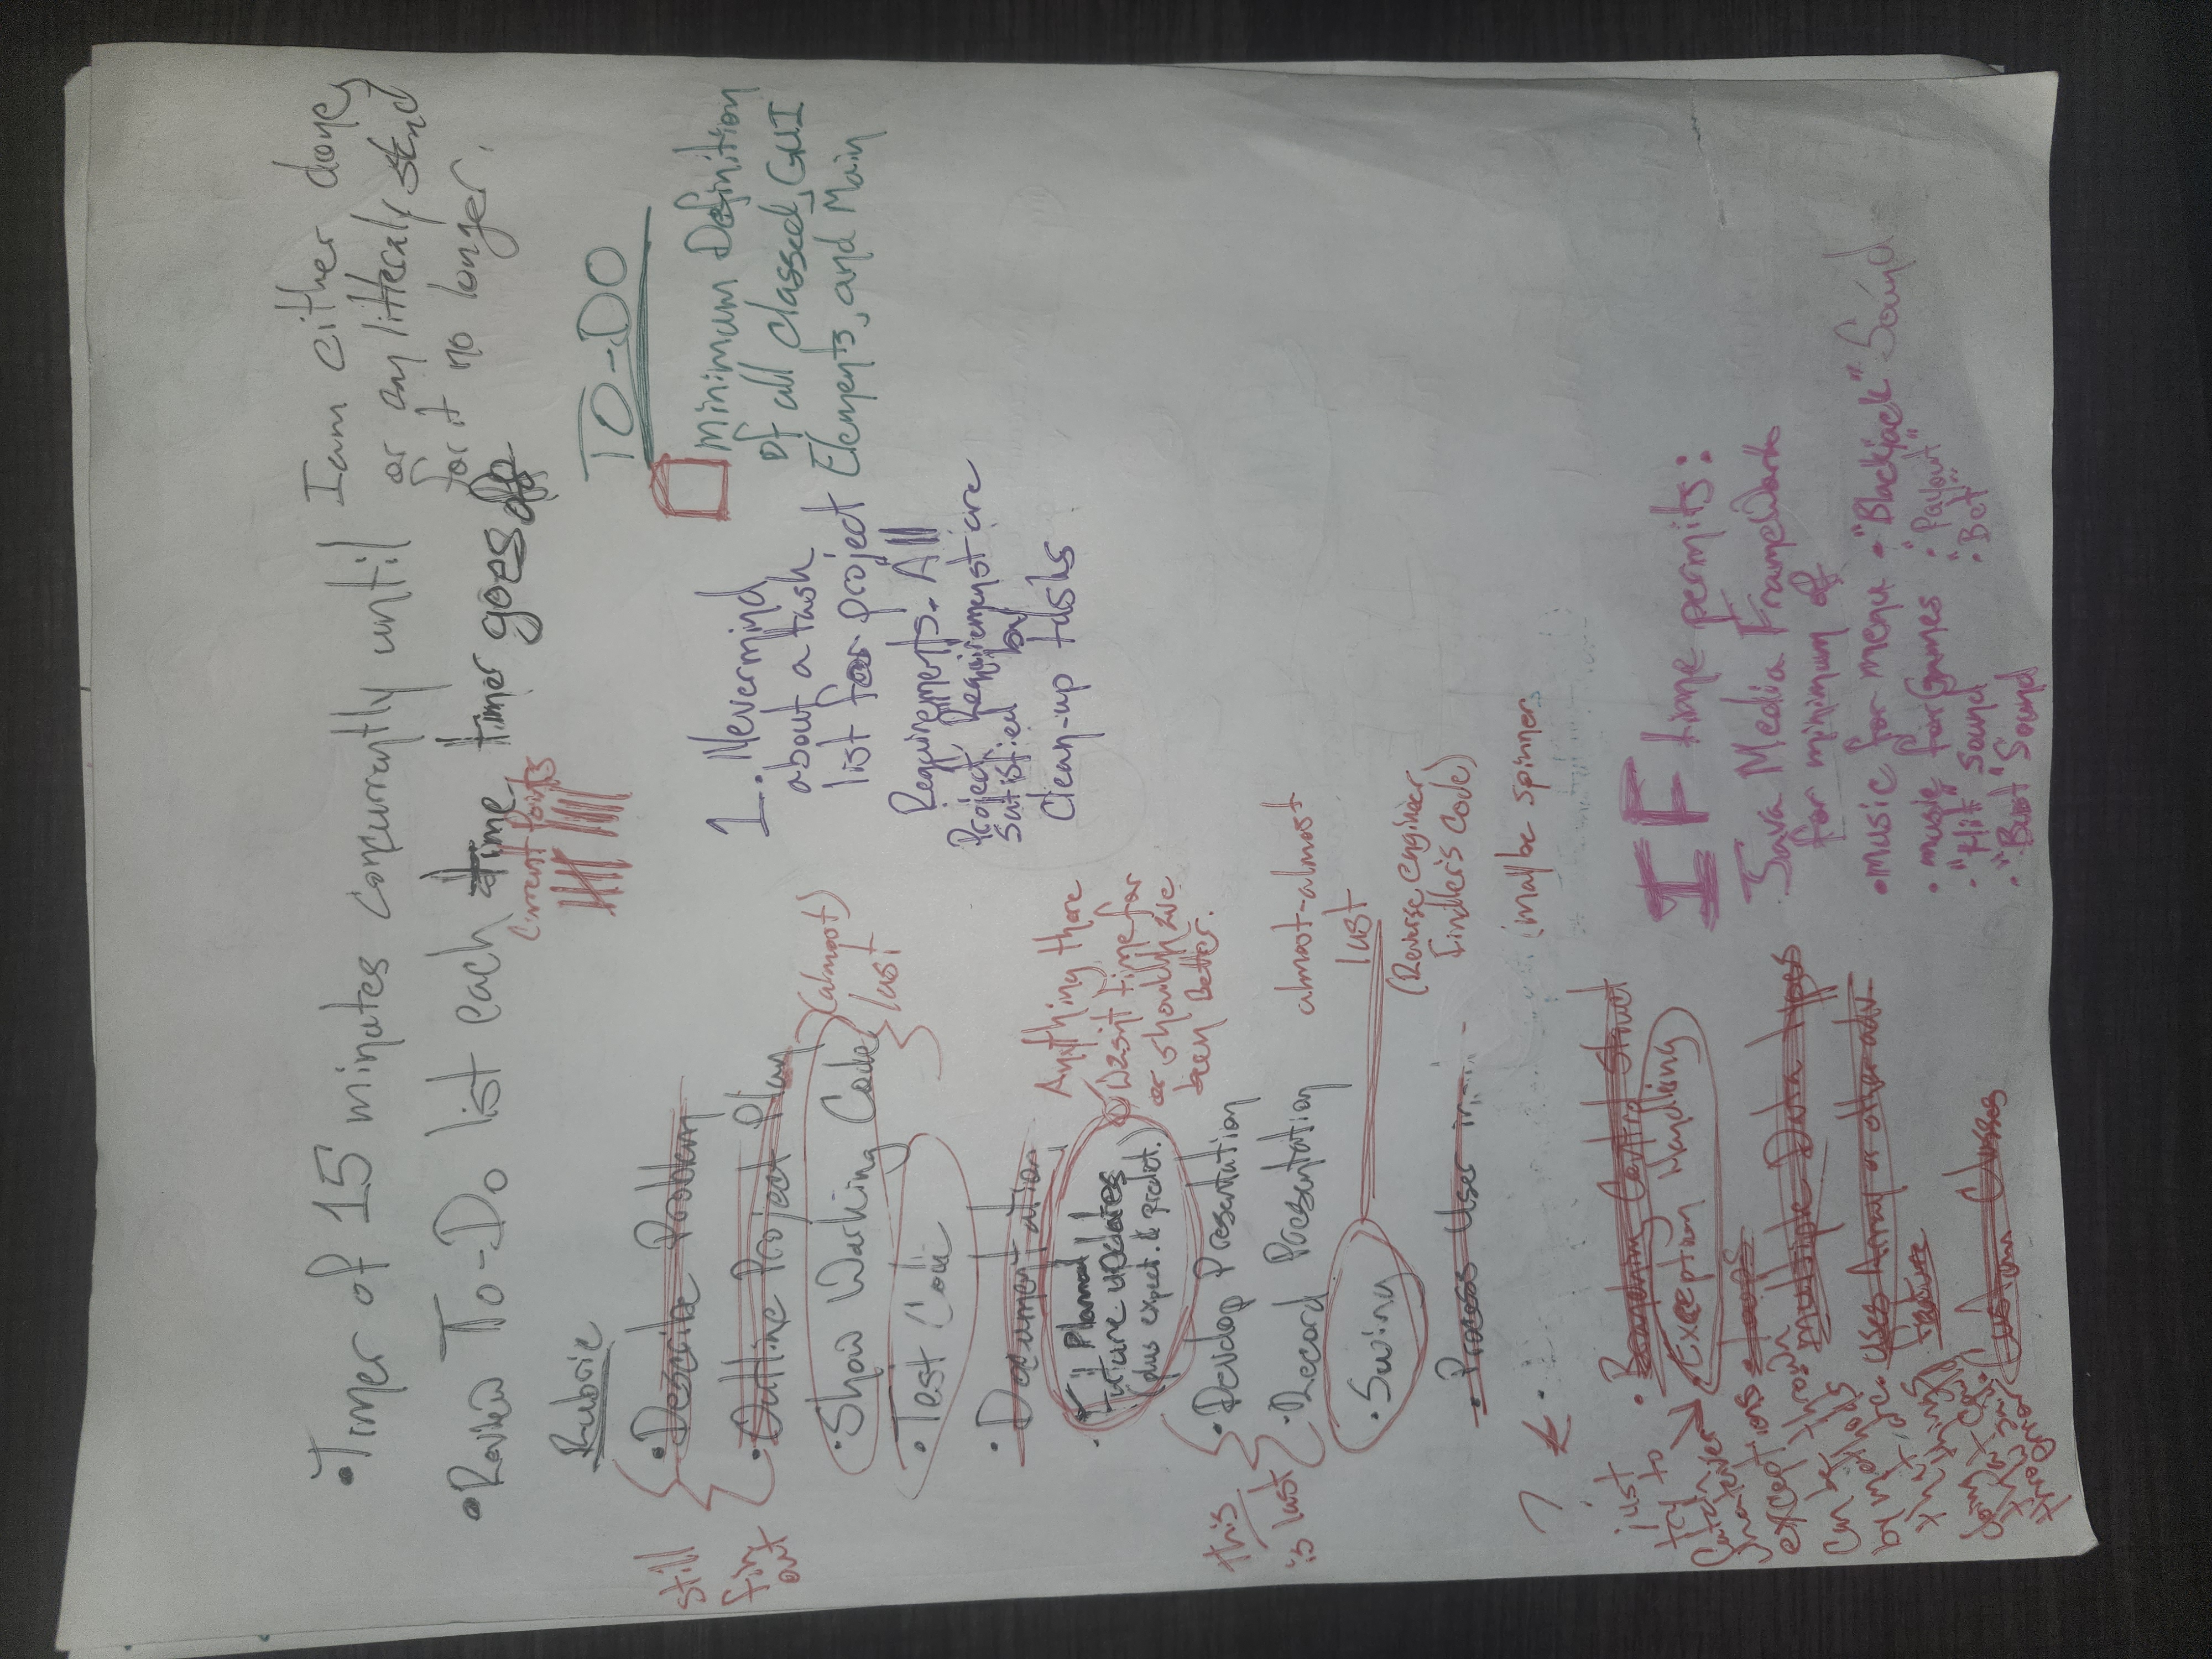 •Timer of 15 minutes concurrently until I am either done,
or can litteraly stand
for it no longer.
•Review To-Do list each time timer goes off
Current Points
Rubric
still
fin
out
•Describe Problem
•Outline Project Plan
•Show Working Code
(almost)
last
•Test Code
•Documentation
•Planned
Future updates
(plus expect. & predict.)
Anything there
wasn't time for
or should have
been Better.
this
is last
•Develop Presentation
•Record Presentation
•Swing
almost-almost
last
(Reverse engineer
Findler's Code)
(maybe spinner
•Process User
?
just
try to
Catch
whatever
exceptions
can be thrown
by methods
that are
doing things
that could
throw said
error
•Branching Control Struct
•Exception Handling
•Loops
•multiple Data types
•uses Array or other adv.
feature
•Custom Classes
1. Nevermind
about a task
list for project
Requirements. All
Project Requiremenst are
satisfied by
Clean-up tasks
TO-DO
minimum Definition
of all classed, GUI
Elements, and Main
IF time permits:
Java Media FrameWork
for minimum of
•music for menu
•music for Games
•"Hit" sound
•"Bust" Sound
•"Blackjack" Sound
•"Payout"
•"Bet"